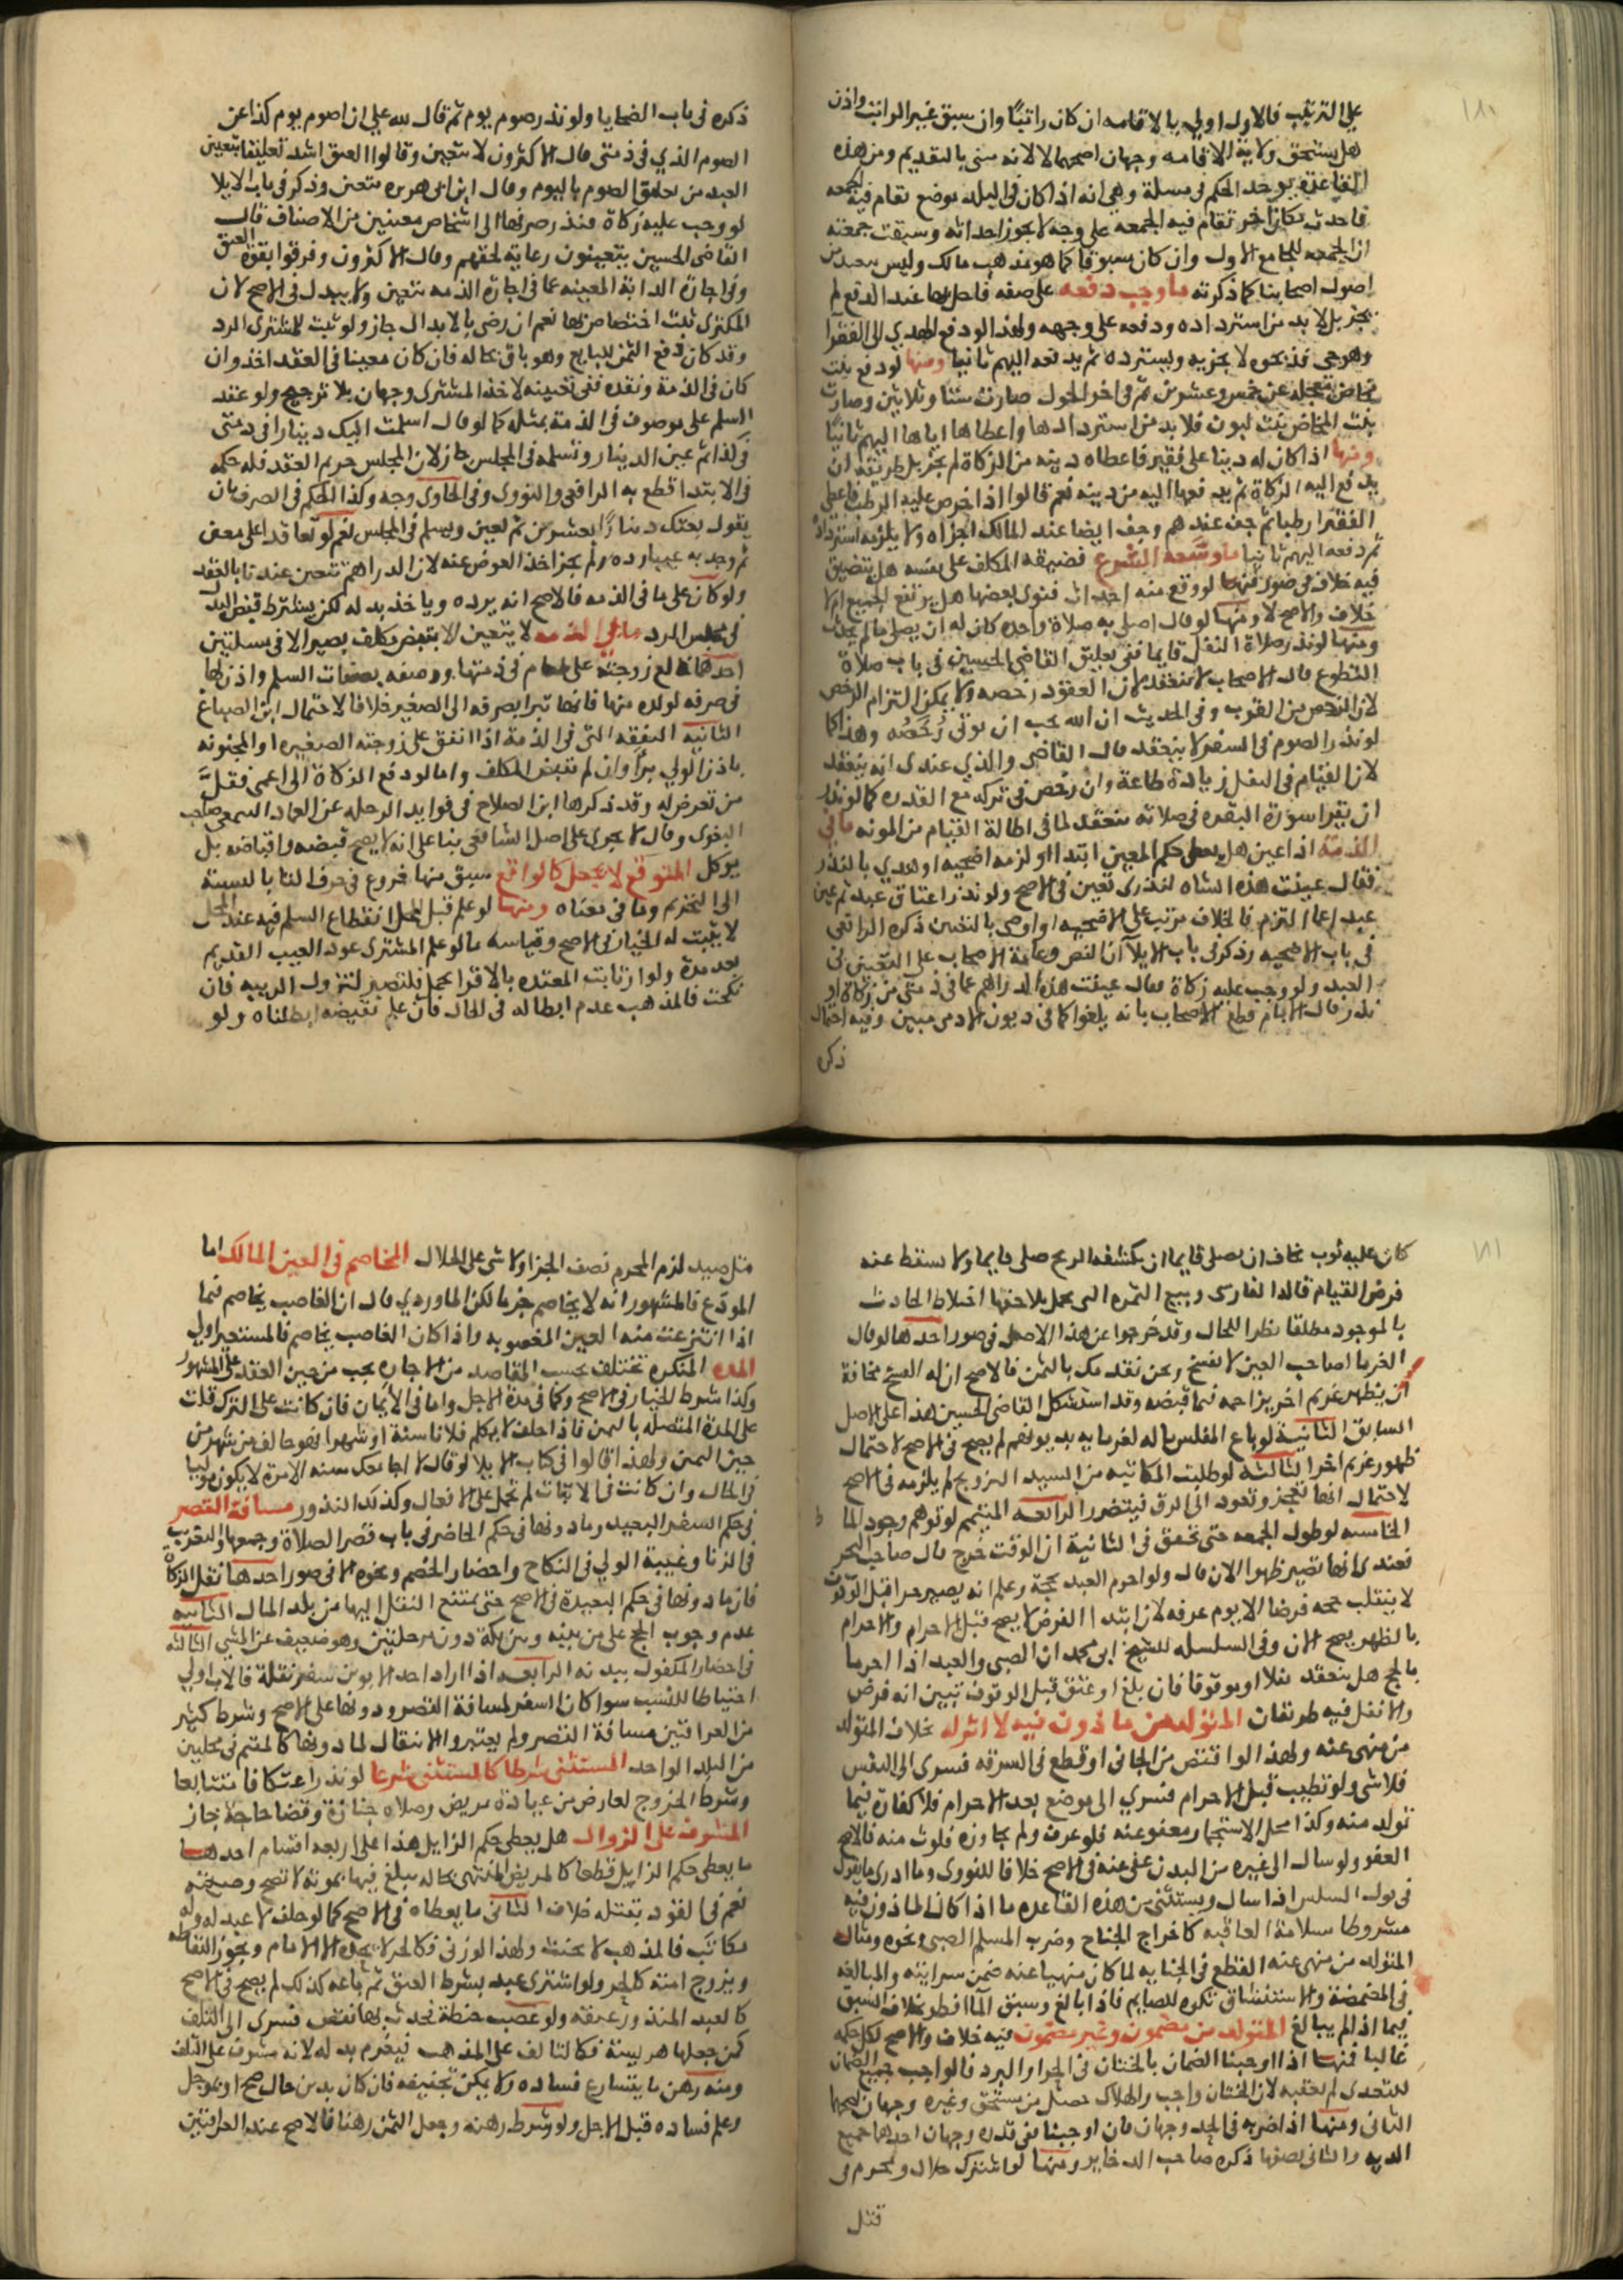 علي الترتيب فالاول اولي بالاقامه ان كان راتبًا وان سبق غير الراتب واذن
هل يستحق ولاية الاقامه وجهان اصحهما لا لانه مسي بالتقديم ومن هذه
القاعدة يوخذ الحكم في مسلة وهي انه اذا كان في البلد موضع تقام فيه الجمعه
فاحدث مكان اخر تقام فيه الجمعه علي وجه لا يجوز احداثه وسبقت جمعته
ان الجمعه للجامع الاول وان كان مسبوقا كما هو مذهب مالك وليس ببعيد من
اصول اصحابنا كما ذكرته ما وجب دفعه علي صفه فاخل بها عند الدفع لم
يجز بل لا بد من استرداده ودفعه علي وجهه ولهذا لو دفع الهدي الي الفقرا
وهو حي فذبحوه لا يجزيه ويسترده ثم يدفعه اليهم ثانيا ومنها لو دفع بنت
مخاض معجلة عن خمس وعشرين ثم في اخر الحول صارت ستا وثلاثين وصارت
بنت المخاض بنت لبون فلا بد من استردادها واعطاها اياها اليهم ثانيًا
ومنها اذا كان له دينا علي فقير فاعطاه دينه من الزكاة لم يجز بل طريقه ان
يدفع اليه الزكاة ثم يدفعها اليه من دينه نعم قالوا اذا خرص عليه الرطب فاعطي
الفقرا رطبا ثم جف عندهم وجف ايضا عند المالك اجزاه ولا يلزمه استرداده
ثم دفعه اليهم ثانيا ما وسَّعه الشرع فضيقه المكلف علي نفسه هل يتضيق
فيه خلاف في صور فمنها لو وقع منه احداث فنوي بعضها هل يرتفع الجميع ام لا
خلاف والاصح لا ومنها لو قال اصلي به صلاة واحده كان له ان يصلي ما لم يحدث
ومنها لو نذر صلاة النفل قايما ففي تعليق القاضي الحسين في باب صلاة
التطوع قال الاصحاب لا تنعقد لان العقود رخصه ولا يمكن التزام الرخص
لان الرخص من القرب وفي الحديث ان الله يحب ان توتي رُخَصُه وهذا كما
لو نذر الصوم في السفر لا ينعقد قال القاضي والذي عندي انه ينعقد
لان القيام في النفل زيادة طاعة وان رخص في تركه مع القدره كما لو نذر
ان يقرا سورة البقره في صلاته تنعقد لما في اطالة القيام من المونه ما في
الذمة اذا عين هل يعطي حكم المعين ابتدا او لزمه اضحيه او هدي بالنذر
فقال عينت هذه الشاه لنذري تعين في الاصح ولو نذر اعتاق عبد ثم عين
عبدا عما التزم فالخلاف مرتب علي الاضحيه واولي بالتعين ذكره الرافعي
في باب الاضحيه وذكر في باب الايلا ان النص وعامة الاصحاب علي التعين في
العبد ولو وجب عليه زكاة فقال عينت هذه الدراهم عما في ذمتي من زكاة او
نذر قال الامام قطع الاصحاب بانه يلغوا كما في ديون الادميين وفيه احتمال
ذكره
ذكره في باب الضحايا ولو نذر صوم يوم ثم قال لله علي ان اصوم يوم كذا عن
الصوم الذي في ذمتي قال الاكثرون لا يتعين وقالوا العتق اشد تعليقا بتعيين
العبد من تعلق الصوم باليوم وقال ابن ابي هريره يتعين وذكر في باب الايلا
لو وجب عليه زكاة فنذر صرفها الي اشخاص معينين من الاصناف قال
القاضي الحسين يتعينون رعاية لحقهم وقال الاكثرون وفرقوا بقوة العتق
وفي اجارة الدابة المعينه عما في اجارة الذمه تتعين ولا يبدل في الاصح لان
المكتري ثبت اختصاص بها نعم ان رضي بالابدال جاز ولو ثبت للمشتري الرد
وقد كان دفع الثمن للبايع وهو باق بحاله فان كان معينا في العقد اخذ وان
كان في الذمة ونقده ففي تعيينه لاخذ المشتري وجهان بلا ترجيح ولو عقد
السلم علي موصوف في الذمة بمثله كما لو قال اسلمت اليك دينارا في ذمتي
في كذا ثم عين الدينار وتسلمه في المجلس جاز لان المجلس حريم العقد فله حكمه
في الابتدا قطع به الرافعي والنووي وفي الحاوي وجه وكذا الحكم في الصرف بان
يقول بعتك دينارًا بعشرين ثم تعين ويسلم في المجلس نعم لو تعاقدا علي معين
ثم وجد به عيبا رده ولم يجز اخذ العوض عنه لان الدراهم تتعين عندنا بالعقد
ولو كان علي ما في الذمه فالاصح انه يرده وياخذ بدله لكن يشترط قبض البدل
في مجلس الرد ما في الذمه لا يتعين الا بقبض مكلف بصير الا في مسلتين
احدهما خالع زوجته علي طعام في ذمتها ووصفه بصفات السلم واذن لها
في صرفه لولده منها فانها تبرا بصرفه الي الصغير خلافا لاحتمال ابن الصباغ
الثانيه النفقه التي في الذمة اذا انفق علي زوجته الصغيره او المجنونه
باذن الولي برأ وان لم تقبض المكلف واما لو دفع الزكاة الي اعمي فقلَّ
من تعرض له وقد ذكرها ابن الصلاح في فوايد الرحله عن العماد النيهي صاحب
البغوي وقال لا يجري علي اصل الشافعي بنا علي انه لا يصح قبضه واقباضه بل
يوكل المتوقع لا يجعل كالواقع سبق منها فروع في حرف التا بالنسبة
الي التحريم وما في معناه ومنها لو علم قبل المحل انقطاع السلم فيه عند المحل
لا يثبت له الخيار في الاصح وقياسه ما لو علم المشتري عود العيب القديم
بعد مدة ولو ارتابت المعتده بالاقرا بحمل فلتصبر لتزول الريبه فان
نكحت فالمذهب عدم ابطاله في الحال فان علم نقيضه ابطلناه ولو
كان عليه ثوب يخاف ان يصلي قايما ان يكشفه الريح صلي قايما ولا يسقط عنه
فرض القيام قاله الفارسي وبيع الثمره التي يحمل بلاحقها اختلاط الحادث
بالموجود مطلقا نظرا للحال وقد خرجوا عن هذا الاصل في صور احدها لو قال
الغرما لصاحب العين لا تفسخ ونحن نقدمك بالثمن فالاصح ان له الفسخ مخافة
ان يظهر غريم اخر يزاحمه فيما قبضه وقد استشكل القاضي الحسين هذا علي الاصل
السابق الثانية لو باع المفلس ماله لغرمايه بديونهم لم يصح في الاصح لاحتمال
ظهور غريم اخر الثالثه لو طلبت المكاتبه من السيد التزويج لم يلزمه في الاصح
لاحتمال انها تعجز وتعود الي الرق فيتضرر الرابعه المتيمم لو توهم وجود الما
الخامسه لو طول الجمعه حتي تحقق في الثانية ان الوقت خرج قال صاحب البحر
فعندي انها تصير ظهرا الان قال ولو احرم العبد بحجة وعلم انه يصير حرا قبل الوقوف
لا ينقلب حجه فرضا الا يوم عرفه لان ابتدا الفرض لا يصح قبل الاحرام والاحرام
بالظهر يصح الان وفي السلسله للشيخ ابي محمد ان الصبي والعبد اذا احرما
بالحج هل ينعقد نفلا او موقوفا فان بلغ او عتق قبل الوقوف تبين انه فرض
والا نفل فيه طريقان المتولد من ماذون فيه لا اثر له بخلاف المتولد
من منهي عنه ولهذا لو اقتص من الجاني او قطع في السرقه فسري الي النفس
فلا شي ولو تطيب قبل الاحرام فسري الي موضع بعد الاحرام فلا كفارة فيما
تولد منه وكذا محل الاستجمار معفو عنه فلو عرق ولم يجاوزه فلوث منه فالاصح
العفو ولو سال الي غيره من البدن عفي عنه في الاصح خلافا للنووي وما ادري ما يقول
في بول السلس اذا سال ويستثني من هذه القاعده ما اذا كان الماذون فيه
مشروطا بسلامة العاقبه كاخراج الجناح وضرب المسلم الصبي ونحوه ومثال
المتولد من منهي عنه القطع في الجنايه لما كان منهيا عنه ضمن سرايته والمبالغه
في المضمضة والاستنشاق تكره للصايم فاذا بالغ وسبق المآ افطر بخلاف السبق
فيما اذا لم يبالغ المتولد من مضمون وغير مضمون فيه خلاف والاصح لكل حكمه
غالبا فمنها اذا اوجبنا الضمان بالختان في الحر او البرد فالواجب جميع الضمان
للتعدي ام نصفه لان الختان واجب والهلاك حصل من مستحق وغيره وجهان اصحهما
الثاني ومنها اذا ضربه في الحد وجهان فان اوجبنا ففي قدره وجهان احدهما جميع
الديه والثاني نصفها ذكره صاحب الذخاير ومنها لو اشترك حلال ومحرم في
قتل
قتل صيد لزم المحرم نصف الجزا ولا شي علي الحلال المخاصم في العين المالك اما
المودَع فالمشهور انه لا يخاصم جزما لكن الماوردي قال ان الغاصب يخاصم فيما
اذا انتزعت منه العين المغصوبه واذا كان الغاصب يخاصم فالمستعير اولي
المدة المنكره تختلف بحسب المقاصد من الاجارة يجب من حين العقد علي المشهور
وكذا شرط الخيار في الاصح وكما في مدة الاجل واما في الايمان فان كانت علي الترك قلت
علي المدة المتصله باليمن فاذا حلف لا يكلم فلانا سنة او شهرا فهو حالف من شهر من
حين اليمن ولهذا قالوا في كتاب الايلا لو قال لا اجامعك سنه الا مرة لا يكون موليا
في الحال وان كانت في الاثبات لم تحمل علي الافعال وكذلك النذور مسافة القصر
في حكم السفر البعيد وما دونها في حكم الحاضر في باب قصر الصلاة وجمعها والتغريب
في الزنا وغيبة الولي في النكاح واحضار الخصم ونحوه الا في صور احدها نقل الزكاة
فان ما دونها في حكم البعيدة في الاصح حتي يمتنع النقل اليها من بلد المال الثانيه
عدم وجوب الحج علي من بينه وبين مكة دون مرحلتين وهو ضعيف عن المشي الثالثه
في احضار المكفول ببدنه الرابعه اذا اراد احد الابوين سفر نقلة فالاب اولي
احتياطا للنسب سوا كان السفر لمسافة القصر ودونها علي الاصح وشرط كثير
من العراقيين مسافة القصر ولم يعتبروا الانتقال لما دونها كالمقيم في محلين
من البلد الواحد المستثني شرطا كالمستثني شرعا لو نذر اعتكافا متتابعا
وشرط الخروج لعارض من عيادة مريض وصلاة جنازة وقضا حاجة جاز
المشرف علي الزوال هل يعطي حكم الزايل هذا علي اربعه اقسام احدها
ما يعطي حكم الزايل قطعا كالمريض المنتهي لحاله يبلغ فيها بموته لا تصح وصيته
نعم في القود بقتله خلاف الثاني ما يعطاه في الاصح كما لو حلف لا عبد له وله
مكاتب فالمذهب لا يحنث ولهذا لو زني فكالحر لا يحده الا الامام ويجوز التقاطه
ويزوج امته كالحر ولو اشتري عبد بشرط العتق ثم باعه كذلك لم يصح في الاصح
كالعبد المنذور عتقه ولو غصب حنطة فحدث بها نقص فسري الي التلف
كمن جعلها هريسة فكالتالف علي المذهب فيغرم بدله لانه مشرف علي التلف
ومنه رهن ما يتسارع فساده ولا يمكن تجفيفه فان كان بدين حال صح او بموجل
وعلم فساده قبل الاجل ولو شرط رهنه وجعل الثمن رهنا فالاصح عند العراقيين